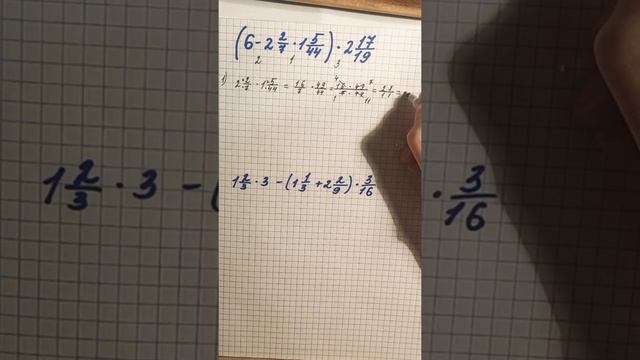 (6 - 2 2/7 · 1 5/44) · 2 17/19
2 1 3
1) 2 2/7 · 1 5/44 = 16/7 · 49/44 =
1 2/3 · 3 - (1 1/3 + 2 2/9) · 3/16
1 2/3 · 3 - (
· 3/16